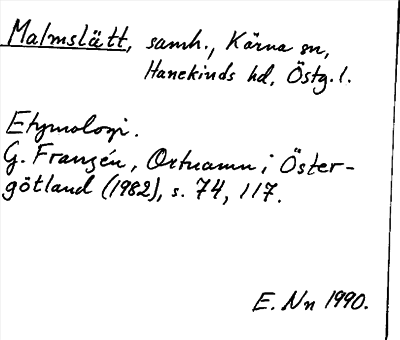 Malmslätt, samh., Kärna sn,
Hanekinds hd, Östg. l.
Etymologi.
G. Franzén, Ortnamn i Öster-
götland (1982), s. 74, 117.
E. Nn 1990.